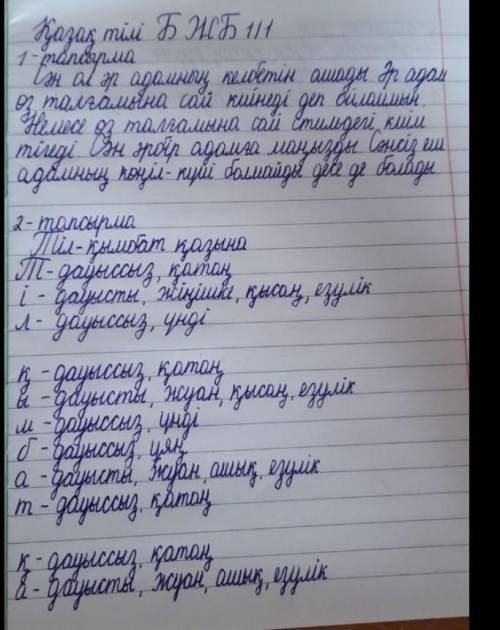 Қазақ тілі БЖБ 1/1
1-тапсырма
Сән ол әр адамның келбетін ашады Әр адам
өз талғамына сай киінеді деп білаймын.
Немесе өз талғамына сай стильдегі киім
тігеді Сән әрбір адамға маңызды Сәнсіз еш
адамның көңіл-күйі болмайды десе де болады
2-тапсырма
Тіл-қымбат қазына
Т-дауыссыз, қатаң
і - дауысты, жіңішке, қысаң, езулік
л- дауыссыз, үнді
қ - дауыссыз, қатаң
ы - дауысты, жуан, қысаң, езулік
м - дауыссыз, үнді
б - дауыссыз, ұяң
а - дауысты, жуан, ашық, езулік
т - дауыссыз, қатаң
қ - дауыссыз, қатаң
а - дауысты, жуан, ашық, езулік